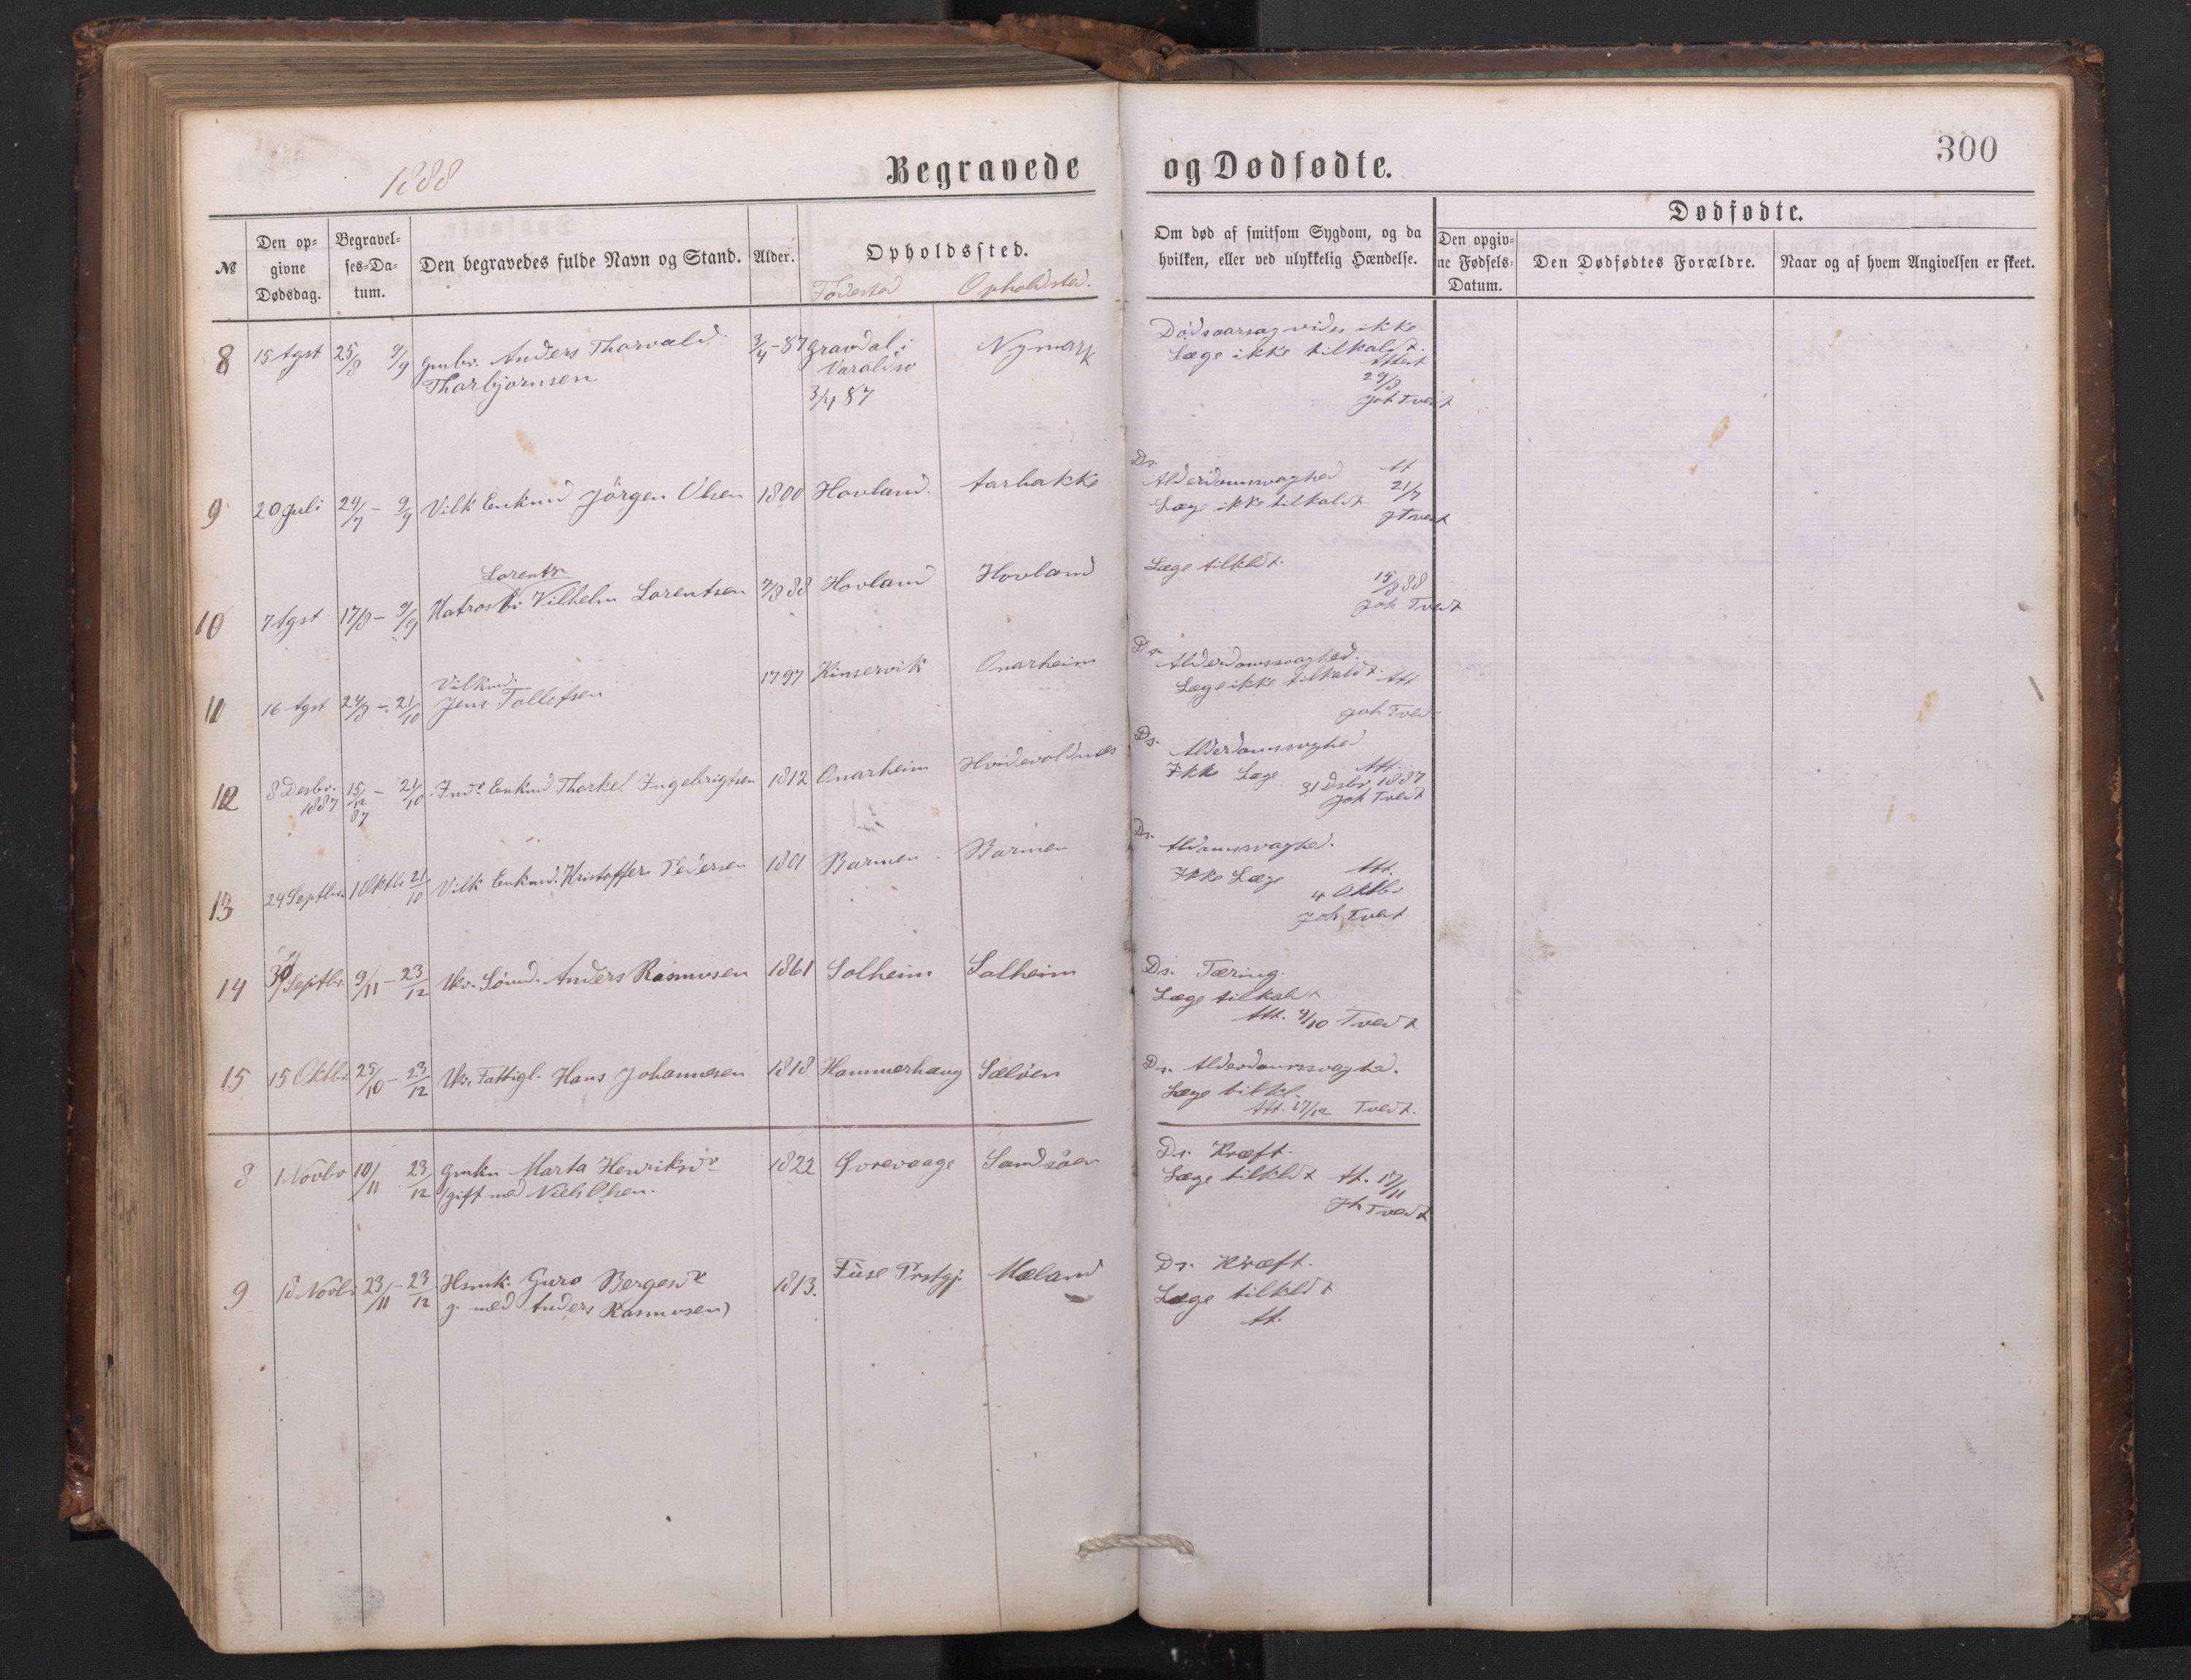 1888
Begravede og Dødfødte.
300
№ Den opgivne Dødsdag. Begravelses-Datum. Den begravedes fulde Navn og Stand. Alder. Opholdssted.
Fødested Opholdsted.
Om død af smitsom Sygdom, og da hvilken, eller ved ulykkelig Hændelse.
Dødfødte.
Den opgivne Fødsels-Datum. Den Dødfødtes Forældre. Naar og af hvem Angivelsen er skeet.
8 15 Agst 25/8 9/9 Gmbr. Anders Thorvald 3/4-87 Gravdal i Nymark
Thorbjørnsen Varaldsø
3/4 87
Dødsaarsag vides ikke
Læge ikke tilkaldt.
Attest
29/8
Joh Tvedt
9 20 Juli 24/7 - 9/9 Vilk Enkmd Jörgen Olsen 1800 Hovland. Aarbakke
Ds.
Alderdomsvaghed At
Læge ikke tilkaldt 21/7
J Tvedt
Lorents
10 7 Agst 17/8 - 9/9 Matros Vilhelm Lorentsen 7/8 88 Hovland Hovland
Læge tilkldt.
15/8 88
Joh Tvedt
Vilkmd.
11 16 Agst 24/8 - 21/10 Jens Tollefsen 1797 Kinservik Onarheim
Ds. Alderdomssvaghed.
Læge ikke tilkaldt. Att
Joh Tvedt
12 8 Desbr. 1887 15/12 87 - 21/10 Inds Enkmd Thorkel Ingebrigtsen 1812 Onarheim Hvidevoldnæs
Ds. Alderdomsvaghed
Ikke Læge Att.
31 Dsbr. 1887
Joh Tvedt
13 24 Septbr. 1 Oktb 21/10 Vilk Enkmd. Kristoffer Pedersen 1801 Barmen Barmen
Ds. Aldomssvaghed.
Ikke Læge Att.
4 Oktbr
Joh Tvedt
14 30 Septbr. 9/11 - 23/12 Ukv. Sömd. Anders Rasmusen 1861 Solheim Solheim
Ds. Tæring.
Læge tilkaldt
Att. 9/10 Tvedt
15 15 Oktb. 25/10 - 23/12 Ukv. Fattigl. Hans Johannesen 1818 Hammerhaug Sælöen
Ds. Alderdomssvaghed.
Læge tilkl.
Att. 17/12 Tvedt.
8 1 Novbr 10/11 23/12 Gmkn Marta Henriksdr 1822 Øvrevaage Sandsöen
(gift med Niels Olsen.
Ds. Kræft.
Læge tilkldt At. 17/11
Jh Tvedt
9 18 Novb. 23/11 - 23/12 Hsmk. Guro Bergesdr 1813. Fuse Prstgj. Mæland
g. med Anders Rasmusen)
Ds. Kræft.
Læge tilkldt
At.